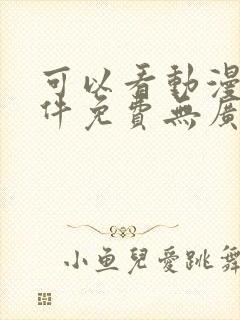 可以看動漫
件免費無廣
小魚兒愛跳舞